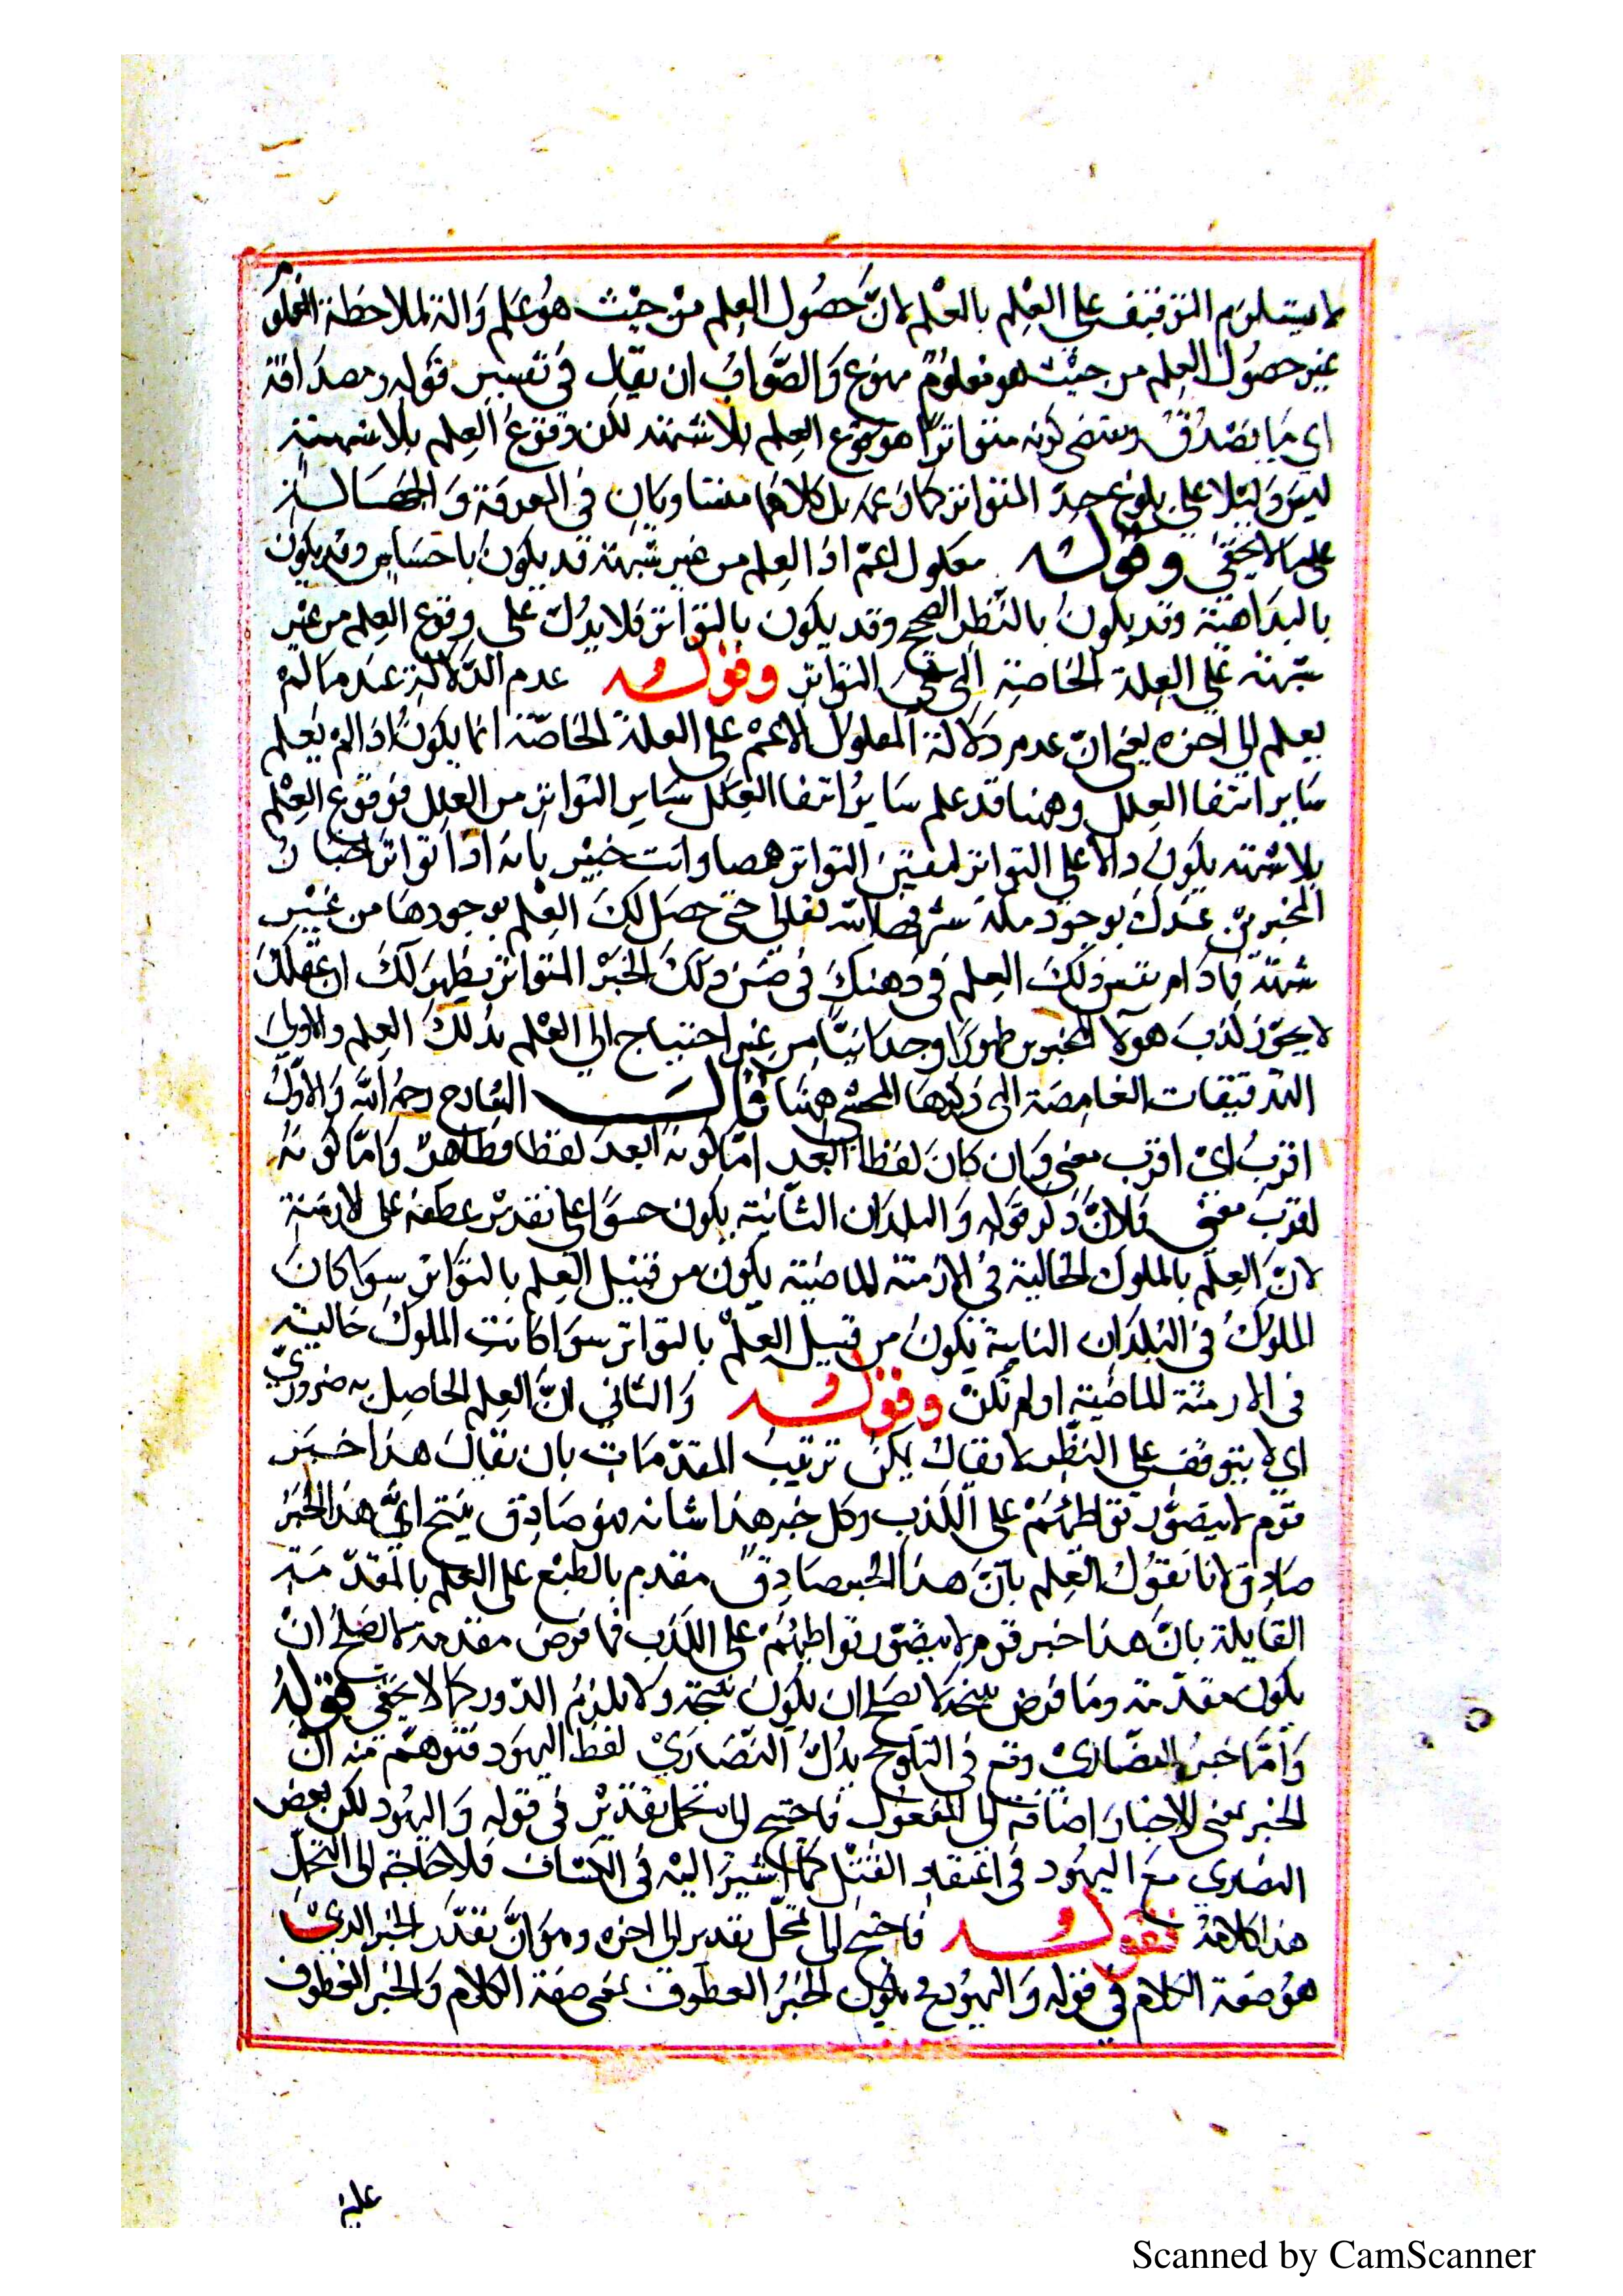 لا يستلزم التوقيف على العلم بالعلم لانّ حصُول العِلم منْ حيْث هُو عَلم وَالة لملاحظة المعلوم
غير حصُول العِلم من حيْث هو مَعلوُمٌ ممنوع وَالصَّوَابُ ان يقال في تفسير قوله ومصدَاقه
اي مَا يصْدقُ ويقتضى كونه متواترًا هو وقوع العِلم بلا شبهة لكن وقوعُ العِلم بلا شبهةٍ
ليسَ دَليلا على بلوغ حدّ المتواتر كما زعمه بل كلاهمَا متساويَانِ في المعرفة وَالجهَالة
على مَا لا يخفى وقوله معلول اعمّ اذ العِلم من غير شبهة قد يكونُ باحسَاسٍ وقد يكون
بالبدَاهة وقد يكونُ بالنَّظر الصحيح وقد يكون بالتوَاتر فلا يدُلّ على وقوع العِلم من غير
شبهة على العِلة الخاصة التي هى التوَاتر وقوله عدم الدّلالة عندمَا لمْ
يعلم الى اخره يعنى انّ عدم دَلالة المعلول الاعمْ على العلة الخاصّة انما يكونُ اذا لمْ يَعلم
سَاير انتفا العِلل وههنا قد علم سَايرُ انتفا العِلل سَاير التوَاتر من العِلل فوقوع العِلْم
بلا شبهة يكونُ دالا على التواتر لتعينَ التواتر ههنا وانت خبيْر بانه اذا تواترَ اخبَارُ
المخبرينَ عندكَ بوجود مكة شرفها الله تعالى حتى حصَل لكَ العِلْم بوجودهَا من غيْر
شبهة فمادَام نفس ذلكَ العِلم في ذهنكَ في ضمن ذلكَ الخبَرْ المتواتر يظهرَ لكَ ان عقلكَ
لا يجوّز كذبَ هولا المخبرين ظهورًا وجدَانيًّا من غير احتيَاج الى العْلم بذلكَ العِلم والاولى
التدقيقات الغامضة التى ذكرهَا المحشى ههنَا قالــــ الشارح رحمهُ اللَّه وَالاوّلُ
اقربُ اىْ اقرب معنى وَان كانَ لفظا ابعد امّا كونهُ ابعدَ لفظا فظاهر وَامّا كونهُ
اقربَ معنى فلانَّ ذكر قوله وَالبلدَان النّائية يكون حشوًا على تقديْر عطفه على الازمنة
لانّ العِلم بالملوك الخالية فىُ الازمنة الماضية يكون من قبيْل العِلم بالتوَاتر سوَا كانَ
الملوُكُ في البلدَان النائية يكونُ من قبيل العِلمْ بالتواتر سوَا كانت الملوك خالية
فى الازمنة الماضيةِ اولم تكنْ وقوله وَالثاني انَّ العِلم الحاصِل به ضروريّ
اى لا يتوقف على النظر لا يقالُ يمكنُ ترتيبُ المقدّمَات بان يقالَ هذا خبَر
قوم لا يتصَوَّر توَاطئهُمْ على الكذب وكل خبر هذا شانه فهوَ صَادِق ينتج انَّ هذا الخبَرْ
صَادِق لانا نقوُلُ العِلم بانَّ هذا الخبر صَادِقٌ مقدم بالطبْع على العِلم بالمقدّمَة
القايلة بانَّ هذا خبر قوم لا يتصَوّر تواطئهُمْ على الكذب فما فرضَ مقدمة لا يصَلحُ انْ
يكونَ مقدّمة ومَا فرض نتيجة لا يصَلح ان يكونَ نتيجة وَلا يلزمُ الدّور كما لا يخفى قوله
وَامّا خبرُ النصَّارىْ وقع في التلويح بدلُ النصَّارَىْ لفظ اليهود فتوهمْ منه انّ
الخبر بمعنى الاخبار اضافة الى المفعُول فاحتيج الى تمحل تقديرْ فى قوله وَاليهُود لكن بعض
النصَارى معَ اليهُود فى اعتقاد القتْل كمَا اشيرَ اليْه فىُ الكشاف فلا حَاجة الى التمحل
هذا كلامهُ فقوله فاحتيج الى تمحل تقدير الى اخره وهوَ انَّ يقدّر الخبر الذىْ
هُو صَفة الكلام فى قوله وَاليهُود فيكون الخبَرُ المعطوف بمعنى صفة الكلام وَالخبر المعطوف
عليه
Scanned by CamScanner